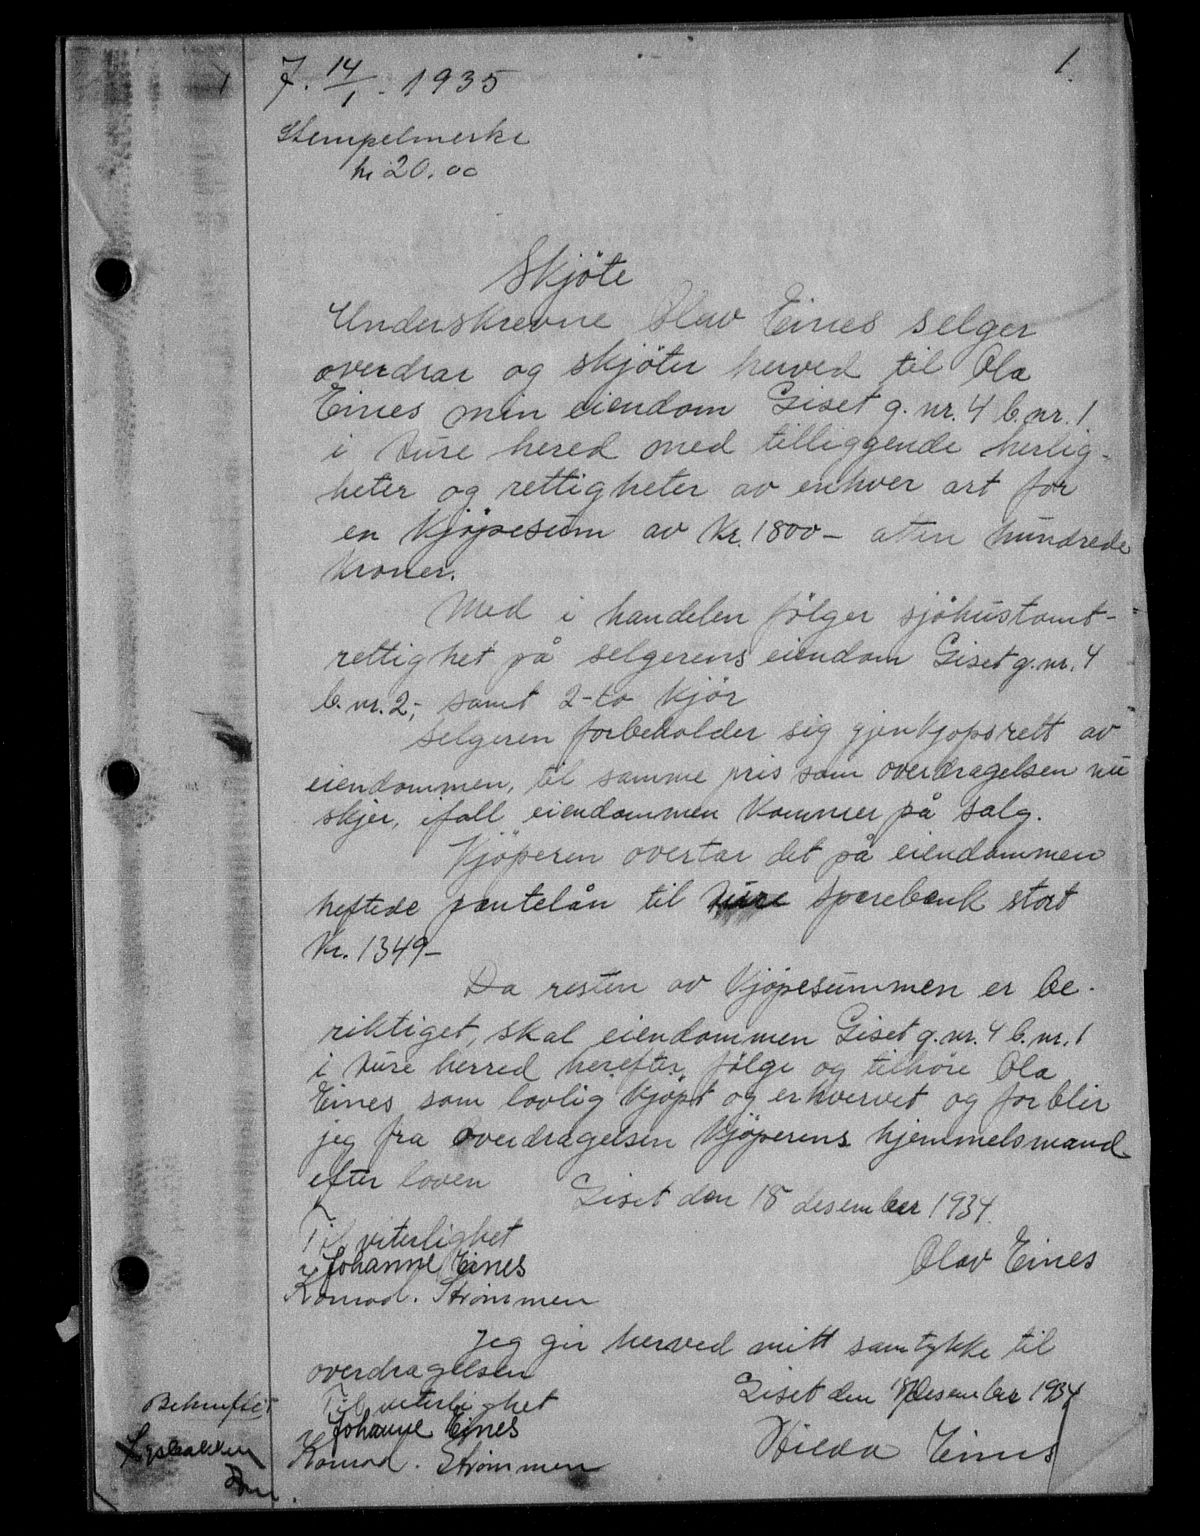 1.
J. 14/1. 1935
Stempelmerke
kr 20.00
Skjöte
Underskrevne Olav Eines selger
overdrar og skjöter herved til Ola
Eines min eiendom Giset g. nr. 4 b. nr. 1.
i hered med tilliggende herlig-
heter og rettigheter av enhver art for
en kjöpesum av kr. 1800- atten hundrede
kroner.
Med i handelen fölger sjöhustomt-
rettighet på selgerens eiendom Giset g. nr. 4
b. nr. 2,- samt 2-to kjör
Selgeren forbeholder sig gjenkjopsrett av
eiendommen, til samme pris som overdragelsen nu
skjer, ifall eiendommen kommer på salg.
Kjöperen overtar det på eiendommen
heftede pantelån til sparebank stort
kr. 1349-
Da resten av kjöpesummen er be-
riktiget, skal eiendommen Giset g. nr. 4 b. nr. 1
i herred herefter fölge og tilhöre Ola
Eines som lovlig kjöpt og erhvervet og forblir
jeg fra overdragelsen kjöperens hjemmelsmand
efter loven
Giset den 18 desember 1934.
Til viterlighet
Johanne Eines
Olav Eines
Konrad. Strömmen
Jeg gir herved mitt samtykke til
overdragelsen
Giset den 18 desember 1934
Til viterlighet
Johanne Eines
Hilda Eines
Konrad. Strömmen
Bekreftet